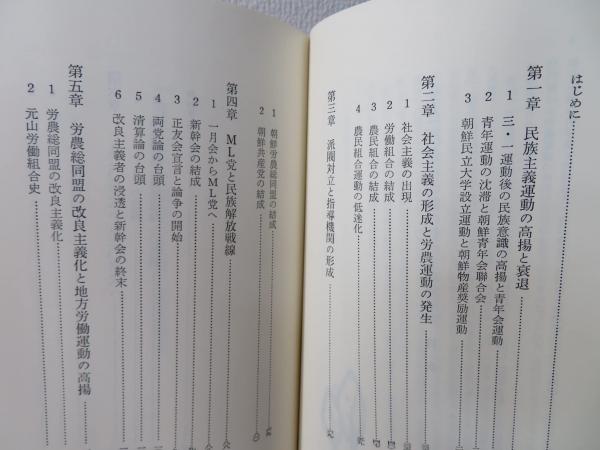 はじめに
第一章 民族主義運動の高揚と衰退
1 三・一運動後の民族意識の高揚と青年会運動
2 青年運動の沈滞と朝鮮青年会聯合会
3 朝鮮民立大学設立運動と朝鮮物産奨励運動
第二章 社会主義の形成と労農運動の発生
1 社会主義の出現
2 労働組合の結成
3 農民組合の結成
4 農民組合運動の低迷化
第三章 派閥対立と指導機関の形成
1 朝鮮労農総同盟の結成
2 朝鮮共産党の結成
第四章 ML党と民族解放戦線
1 一月会からML党へ
2 新幹会の結成
3 正友会宣言と論争の開始
4 両党論の台頭
5 清算論の台頭
6 改良主義者の浸透と新幹会の終末
第五章 労農総同盟の改良主義化と地方労働運動の高揚
1 労農総同盟の改良主義化
2 元山労働組合史